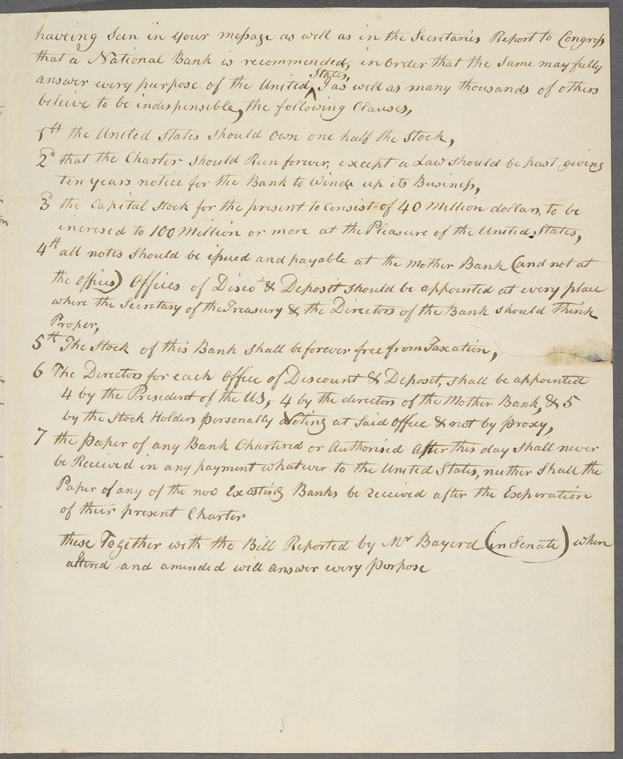 haveing Seen in your message as well as in the Secretaries Report to Congress
that a National Bank is recommended, in order that the same may fully
answer every purpose of the United States, I as well as many thousands of others
beleive to be indespensible, the following Clauses,
1st the United States Should Own one half the Stock,
2d that the Charter Should Run forever, except a Law Should be past giving
ten years notice for the Bank to Winde up its Business,
3d the Capital Stock for the present to Consist of 40 Million dollars, to be
incresed to 100 Million or more at the Pleasure of the United States,
4th all notes Should be issued and payable at the Mother Bank (and not at
the offices) Offices of Disct. & Deposit Should be appointed at every place
where the Secretary of the Treasury & the Directors of the Bank Should think
Proper,
5th The Stock of this Bank Shall be forever free from Taxation,
6 The Directors for each Office of Discount & Deposit, Shall be appointed
4 by the President of the US, 4 by the directors of the Mother Bank, & 5
by the Stock Holders personally Voting at Said Office & not by proxy,
7 the Paper of any Bank Chartered or Authorised After this day Shall never
be Received in any payment whatever to the United States, neither Shall the
Paper of any of the now Existing Banks be received after the Experation
of their present Charter
these Together with the Bill Reported by Mr Bayerd (in Senate) when
altered and amended will answer every purpose